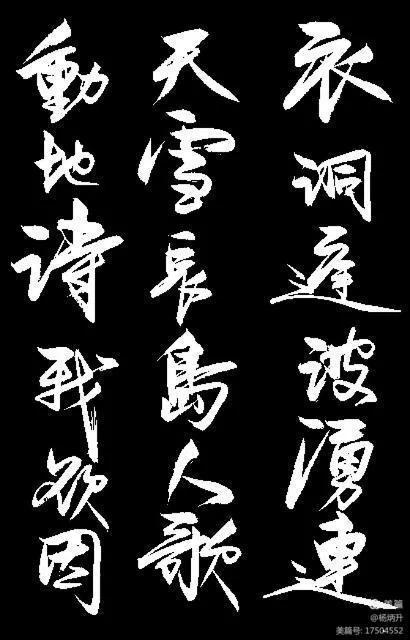 衣洞庭波湧連
天雪長島人歌
動地詩我欲因
美篇
@杨炳升
美篇号: 17504552